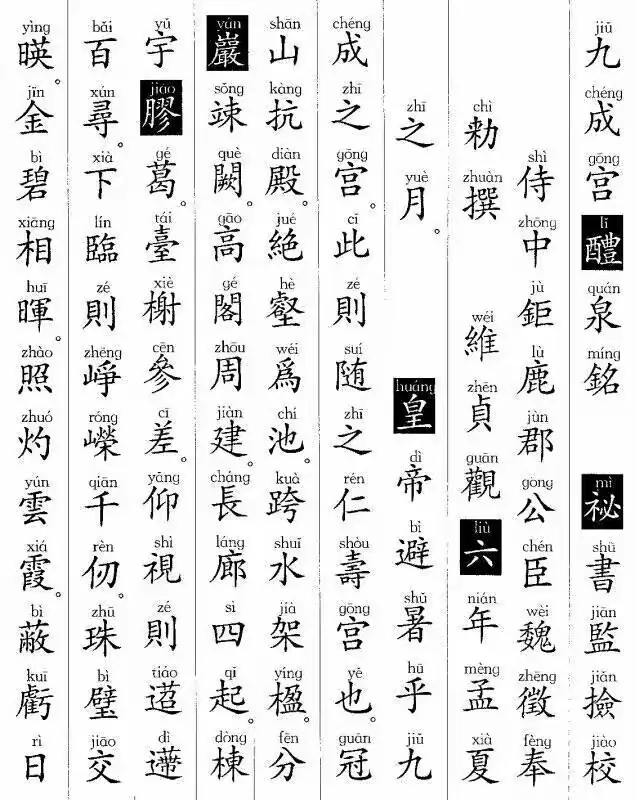 jiǔ chéng gōng lǐ quán míng mì shū jiān jiǎn jiào
九成宫醴泉銘 祕書監撿校
shì zhōng jù lù jùn gōng chén wèi zhēng fèng
侍中鉅鹿郡公臣魏徵奉
chì zhuàn wéi zhēn guān liù nián mèng xià
勑撰 維貞觀六年孟夏
zhī yuè huáng dì bì shǔ hū jiǔ
之月。 皇帝避暑乎九
chéng zhī gōng cǐ zé suí zhī rén shòu gōng yě guān
成之宫。此則随之仁壽宫也。冠
shān kàng diàn jué hè wéi chí kuà shuǐ jià yíng fēn
山抗殿。絶壑爲池。跨水架楹。分
yán sǒng què gāo gé zhōu jiàn cháng láng sì qǐ dòng
巖竦闕。高閣周建。長廊四起。棟
yǔ jiāo gé tái xiè cēn cī yǎng shì zé tiáo dì
宇膠葛。臺榭參差。仰視則迢遰
bǎi xún xià lín zé zhēng róng qiān rèn zhū bì jiāo
百尋。下臨則崢嶸千仞。珠璧交
yìng jīn bì xiāng huī zhào zhuó yún xiá bì kuī rì
暎。金碧相暉。照灼雲霞。蔽虧日